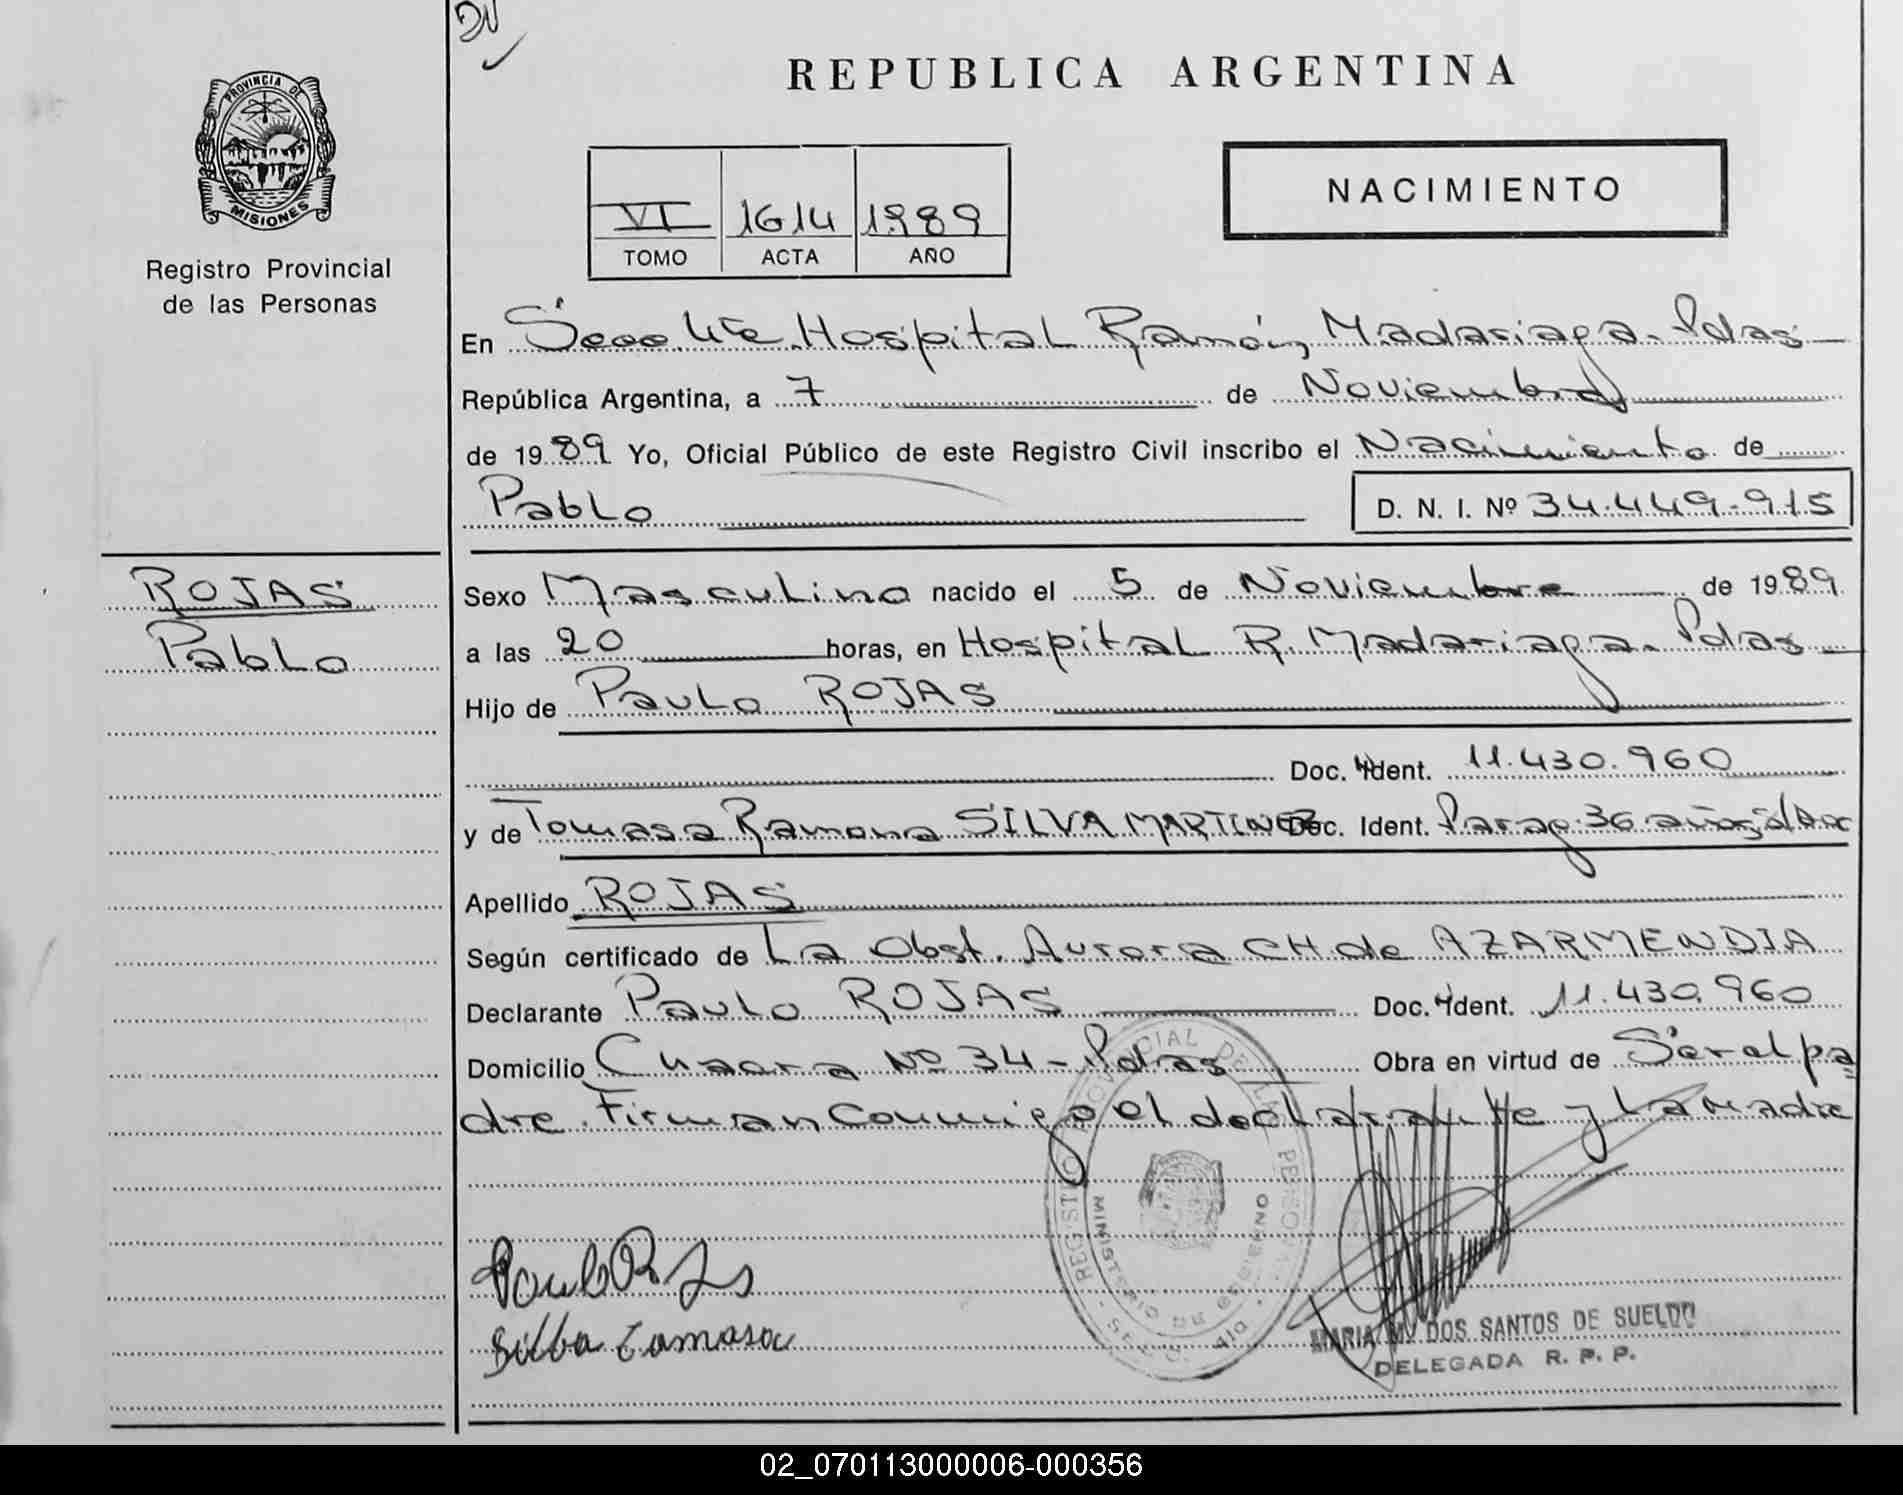 REPUBLICA ARGENTINA
PROVINCIA DE
MISIONES
Registro Provincial
de las Personas
NACIMIENTO
VI 1614 1989
TOMO ACTA AÑO
En Hospital Ramón Madariaga. Pdas
República Argentina, a 7 de Noviembre
de 1989 Yo, Oficial Público de este Registro Civil inscribo el Nacimiento de
Pablo D. N. I. Nº 34.449.915
ROJAS
Pablo
Sexo Masculino nacido el 5 de Noviembre de 1989
a las 20 horas, en Hospital R. Madariaga. Pdas
Hijo de Paulo ROJAS
Doc. Ident. 11.430.960
y de Tomasa Ramona SILVA MARTINEZ Doc. Ident. Parag. 36 años
Apellido ROJAS
Según certificado de La Obst. Aurora CH de AZARMENDIA
Declarante Paulo ROJAS Doc. Ident. 11.430.960
Domicilio Nº 34 - Pdas Obra en virtud de Ser el pa
dre. Firman Conmigo el declarante y La madre
REGISTRO PROVINCIAL DE LAS PERSONAS
MINISTERIO DE GOBIERNO
Paulo Rojas
Silba Tomasa
MARIA M. DOS SANTOS DE SUELDO
DELEGADA R. P. P.
02_070113000006-000356